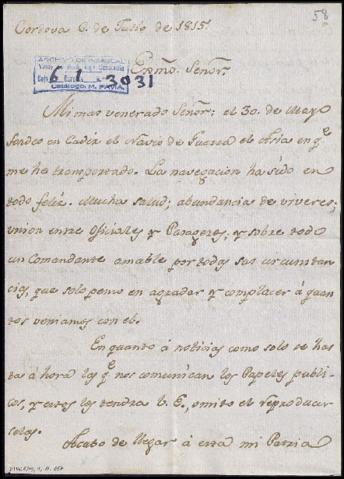 58
Cordova 6. de Julio de 1815.
Exmõ. Señor.
6 1 3031
Mi mas venerado Señor: el 30. de Mayo
fondeó en Cadiz el Navio de Guerra el Asia en q.e
me he transportado. La navegacion ha sido en
todo feliz. Mucha salud; abundancia de viveres;
union entre Oficiales y Pasageros, y sobre todo
un Comandante amable por todas sus circunstan
cias, que solo penso en agradar y complacer á quan
tos veniamos con el.
En quanto á noticias como solo se has
ta ahora las q.e nos comunican los Papeles publi
cos, y estos los tendra V. E., omito el reproducir
selas.
Acabo de llegar á esta mi Patria